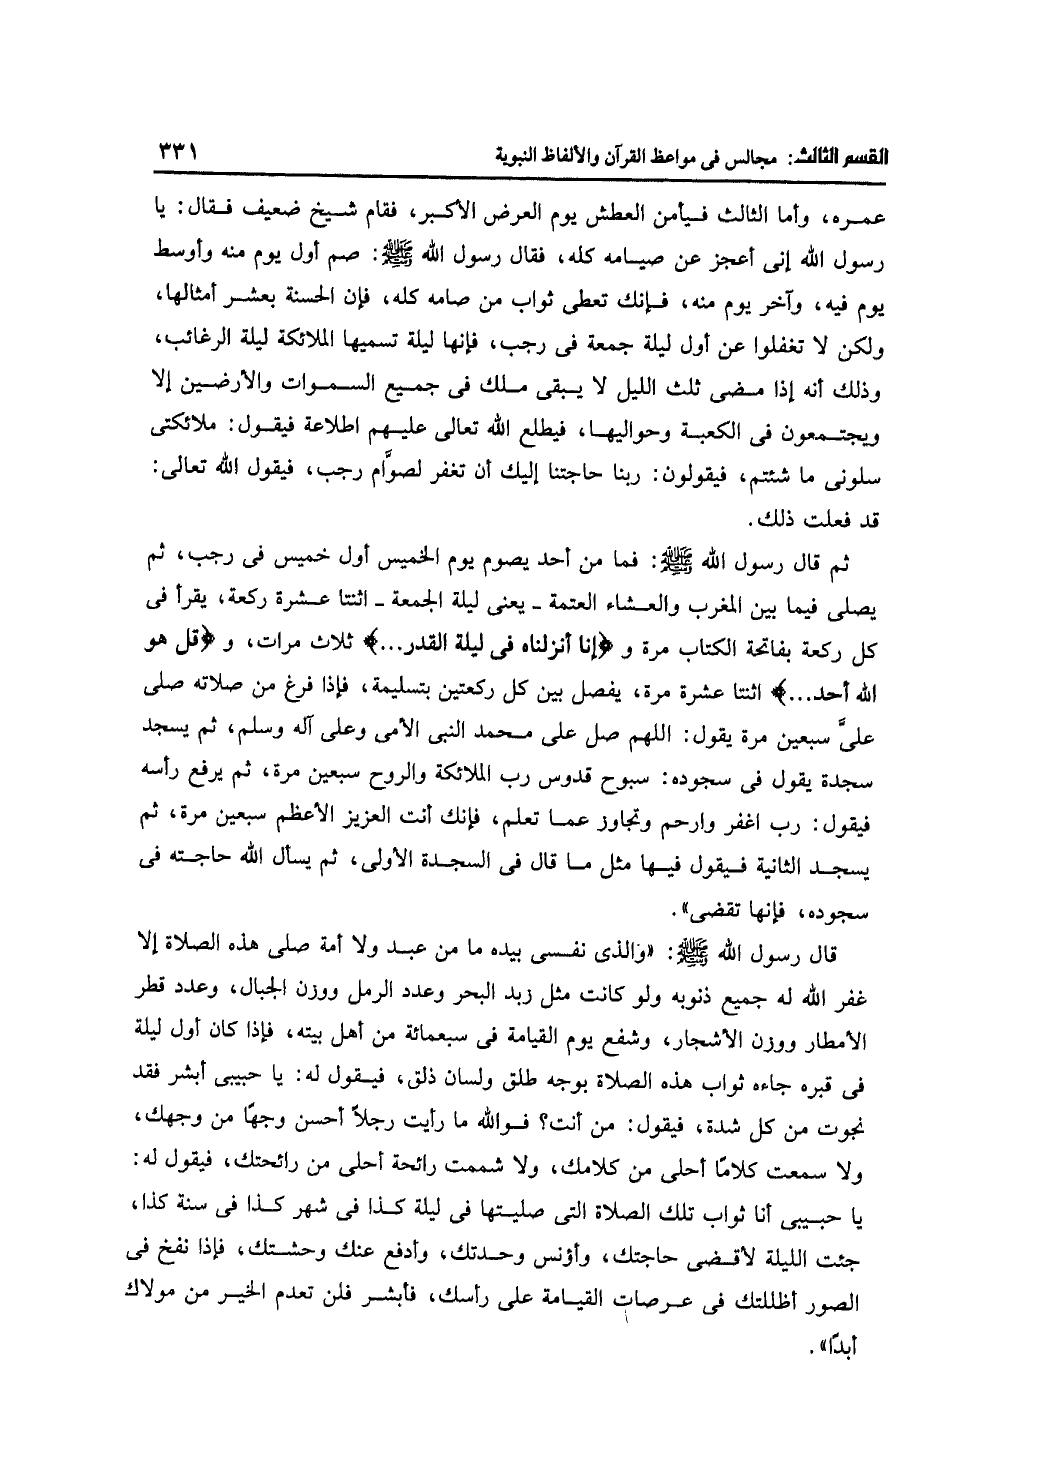 القسم الثالث: مجالس فى مواعظ القرآن والألفاظ النبوية ٣٣١
عمره، وأما الثالث فيأمن العطش يوم العرض الأكبر، فقام شيخ ضعيف فقال: يا
رسول الله إنى أعجز عن صيامه كله، فقال رسول الله ﷺ: صم أول يوم منه وأوسط
يوم فيه، وآخر يوم منه، فإنك تعطى ثواب من صامه كله، فإن الحسنة بعشر أمثالها،
ولكن لا تغفلوا عن أول ليلة جمعة فى رجب، فإنها ليلة تسميها الملائكة ليلة الرغائب،
وذلك أنه إذا مضى ثلث الليل لا يبقى ملك فى جميع السموات والأرضين إلا
ويجتمعون فى الكعبة وحواليها، فيطلع الله تعالى عليهم اطلاعة فيقول: ملائكتى
سلونى ما شئتم، فيقولون: ربنا حاجتنا إليك أن تغفر لصوَّام رجب، فيقول الله تعالى:
قد فعلت ذلك.
ثم قال رسول الله ﷺ: فما من أحد يصوم يوم الخميس أول خميس فى رجب، ثم
يصلى فيما بين المغرب والعشاء العتمة ـ يعنى ليلة الجمعة ـ اثنتا عشرة ركعة، يقرأ فى
كل ركعة بفاتحة الكتاب مرة و ﴿إنا أنزلناه فى ليلة القدر...﴾ ثلاث مرات، و ﴿قل هو
الله أحد...﴾ اثنتا عشرة مرة، يفصل بين كل ركعتين بتسليمة، فإذا فرغ من صلاته صلى
علىَّ سبعين مرة يقول: اللهم صل على محمد النبى الأمى وعلى آله وسلم، ثم يسجد
سجدة يقول فى سجوده: سبوح قدوس رب الملائكة والروح سبعين مرة، ثم يرفع رأسه
فيقول: رب اغفر وارحم وتجاوز عما تعلم، فإنك أنت العزيز الأعظم سبعين مرة، ثم
يسجد الثانية فيقول فيها مثل ما قال فى السجدة الأولى، ثم يسأل الله حاجته فى
سجوده، فإنها تقضى».
قال رسول الله ﷺ: «والذى نفسى بيده ما من عبد ولا أمة صلى هذه الصلاة إلا
غفر الله له جميع ذنوبه ولو كانت مثل زبد البحر وعدد الرمل ووزن الجبال، وعدد قطر
الأمطار ووزن الأشجار، وشفع يوم القيامة فى سبعمائة من أهل بيته، فإذا كان أول ليلة
فى قبره جاءه ثواب هذه الصلاة بوجه طلق ولسان ذلق، فيقول له: يا حبيبى أبشر فقد
نجوت من كل شدة، فيقول: من أنت؟ فوالله ما رأيت رجلاً أحسن وجهًا من وجهك،
ولا سمعت كلامًا أحلى من كلامك، ولا شممت رائحة أحلى من رائحتك، فيقول له:
يا حبيبى أنا ثواب تلك الصلاة التى صليتها فى ليلة كذا فى شهر كذا فى سنة كذا،
جئت الليلة لأقضى حاجتك، وأؤنس وحدتك، وأدفع عنك وحشتك، فإذا نفخ فى
الصور أظللتك فى عرصات القيامة على رأسك، فأبشر فلن تعدم الخير من مولاك
أبدًا».